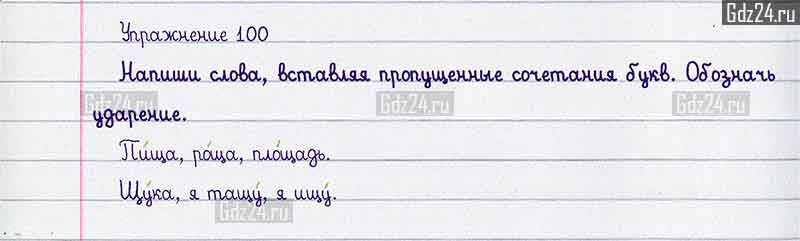 Gdz24.ru
Упражнение 100
Напиши слова, вставляя пропущенные сочетания букв. Обозначь
Gdz24.ru Gdz24.ru Gdz24.ru
ударение.
Пи́ща, ро́ща, пло́щадь.
Щу́ка, я тащу́, я ищу́.
Gdz24.ru